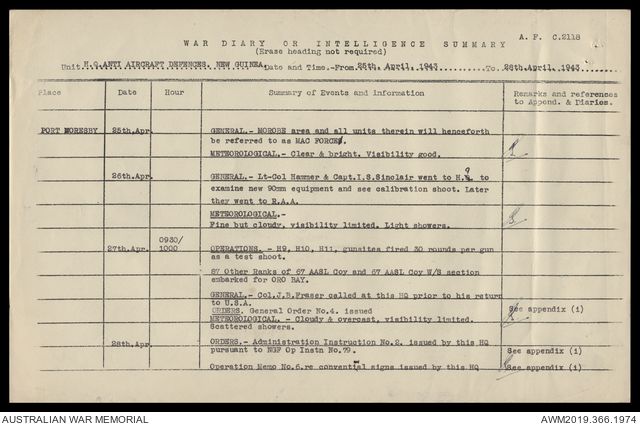 WAR DIARY OR INTELLIGENCE SUMMARY
A. F. C.2118
(Erase heading not required)
Unit H.Q.ANTI AIRCRAFT DEFENCES, NEW GUINEA. Date and Time.-From. 25th. April, 1943 To 28th.April, 1943
Place Date Hour Summary of Events and information Remarks and references
to Append. & Diaries.
PORT MORESBY 25th.Apr. GENERAL.- MOROBE area and all units therein will henceforth
be referred to as MAC FORCE.
METEOROLOGICAL.- Clear & bright. Visibility good.
26th.Apr. GENERAL.- Lt-Col Hammer & Capt.I.S.Sinclair went to H.9 to
examine new 90mm equipment and see calibration shoot. Later
they went to R.A.A.
METEOROLOGICAL.-
Fine but cloudy, visibility limited. Light showers.
27th.Apr. 0930/
1000 OPERATIONS. - H9, H10, H11, gunsites fired 30 rounds per gun
as a test shoot.
87 Other Ranks of 67 AASL Coy and 67 AASL Coy W/S section
embarked for ORO BAY.
GENERAL.- Col.J.B.Fraser called at this HQ prior to his return
to U.S.A.
ORDERS. General Order No.4. issued See appendix (i)
METEOROLOGICAL. - Cloudy & overcast, visibility limited.
Scattered showers.
28th.Apr. ORDERS.- Administration Instruction No.2. issued by this HQ
pursuant to NGF Op Instn No.79. See appendix (i)
Operation Memo No.6.re convential signs issued by this HQ See appendix (i)
AUSTRALIAN WAR MEMORIAL AWM2019.366.1974